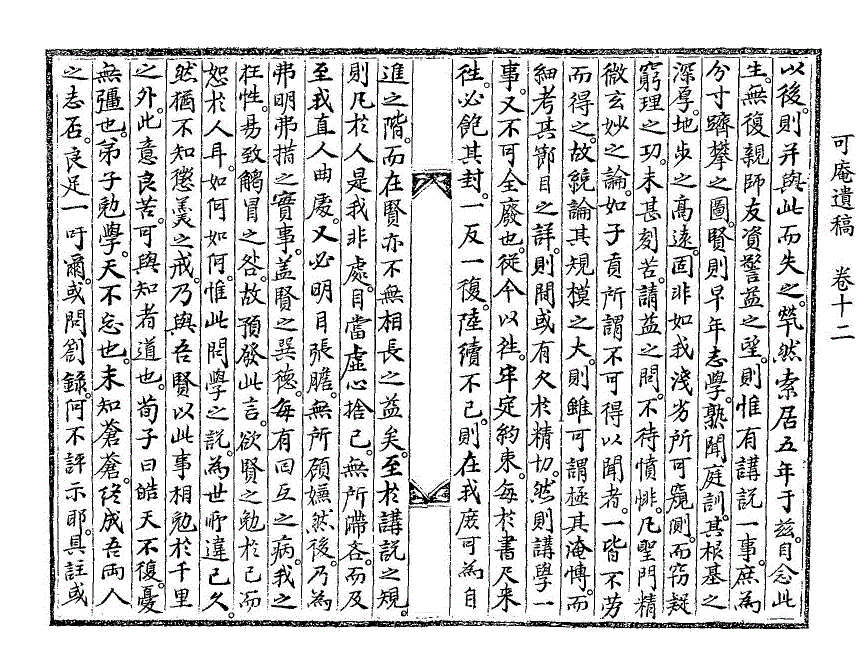 可庵遺稿 卷十二
以後。則幷與此而失之。煢然索居五年于玆。自念此
生。無復親師友資警益之望。則惟有講說一事。庶為
分寸躋攀之圖。賢則早年志學。熟聞庭訓。其根基之
深厚。地步之高遠。固非如我淺劣所可窺測。而窃疑
窮理之功。未甚刻苦。請益之問。不待憤悱。凡聖門精
微玄妙之論。如子貢所謂不可得以聞者。一皆不劳
而得之。故統論其規模之大。則雖可謂極其淹愽。而
細考其節目之詳。則問或有欠於精切。然則講學一
事。又不可全廢也。從今以徃。牢定約束。每於書尺来
徃。必飽其封。一反一復。陸續不已。則在我庶可為自
進之階。而在賢亦不無相長之益矣。至於講說之規。
則凡於人是我非處。自當虛心捨己。無所滯吝。而及
至我直人曲處。又必明目張膽。無所顧嫌然後。乃為
弗明弗措之實事。盖賢之巽德。每有回互之病。我之
狂性。易致觸冒之咎。故預發此言。欲賢之勉於己而
恕於人耳。如何如何。惟此問學之說。為世所違已久。
然猶不知懲羹之戒。乃與吾賢以此事相勉於千里
之外。此意良苦。可與知者道也。荀子曰皓天不復。憂
無彊也。弟子勉學。天不忘也。未知蒼蒼。終成吾兩人
之志否。良足一吁爾。或問劄錄。何不評示耶。具註或